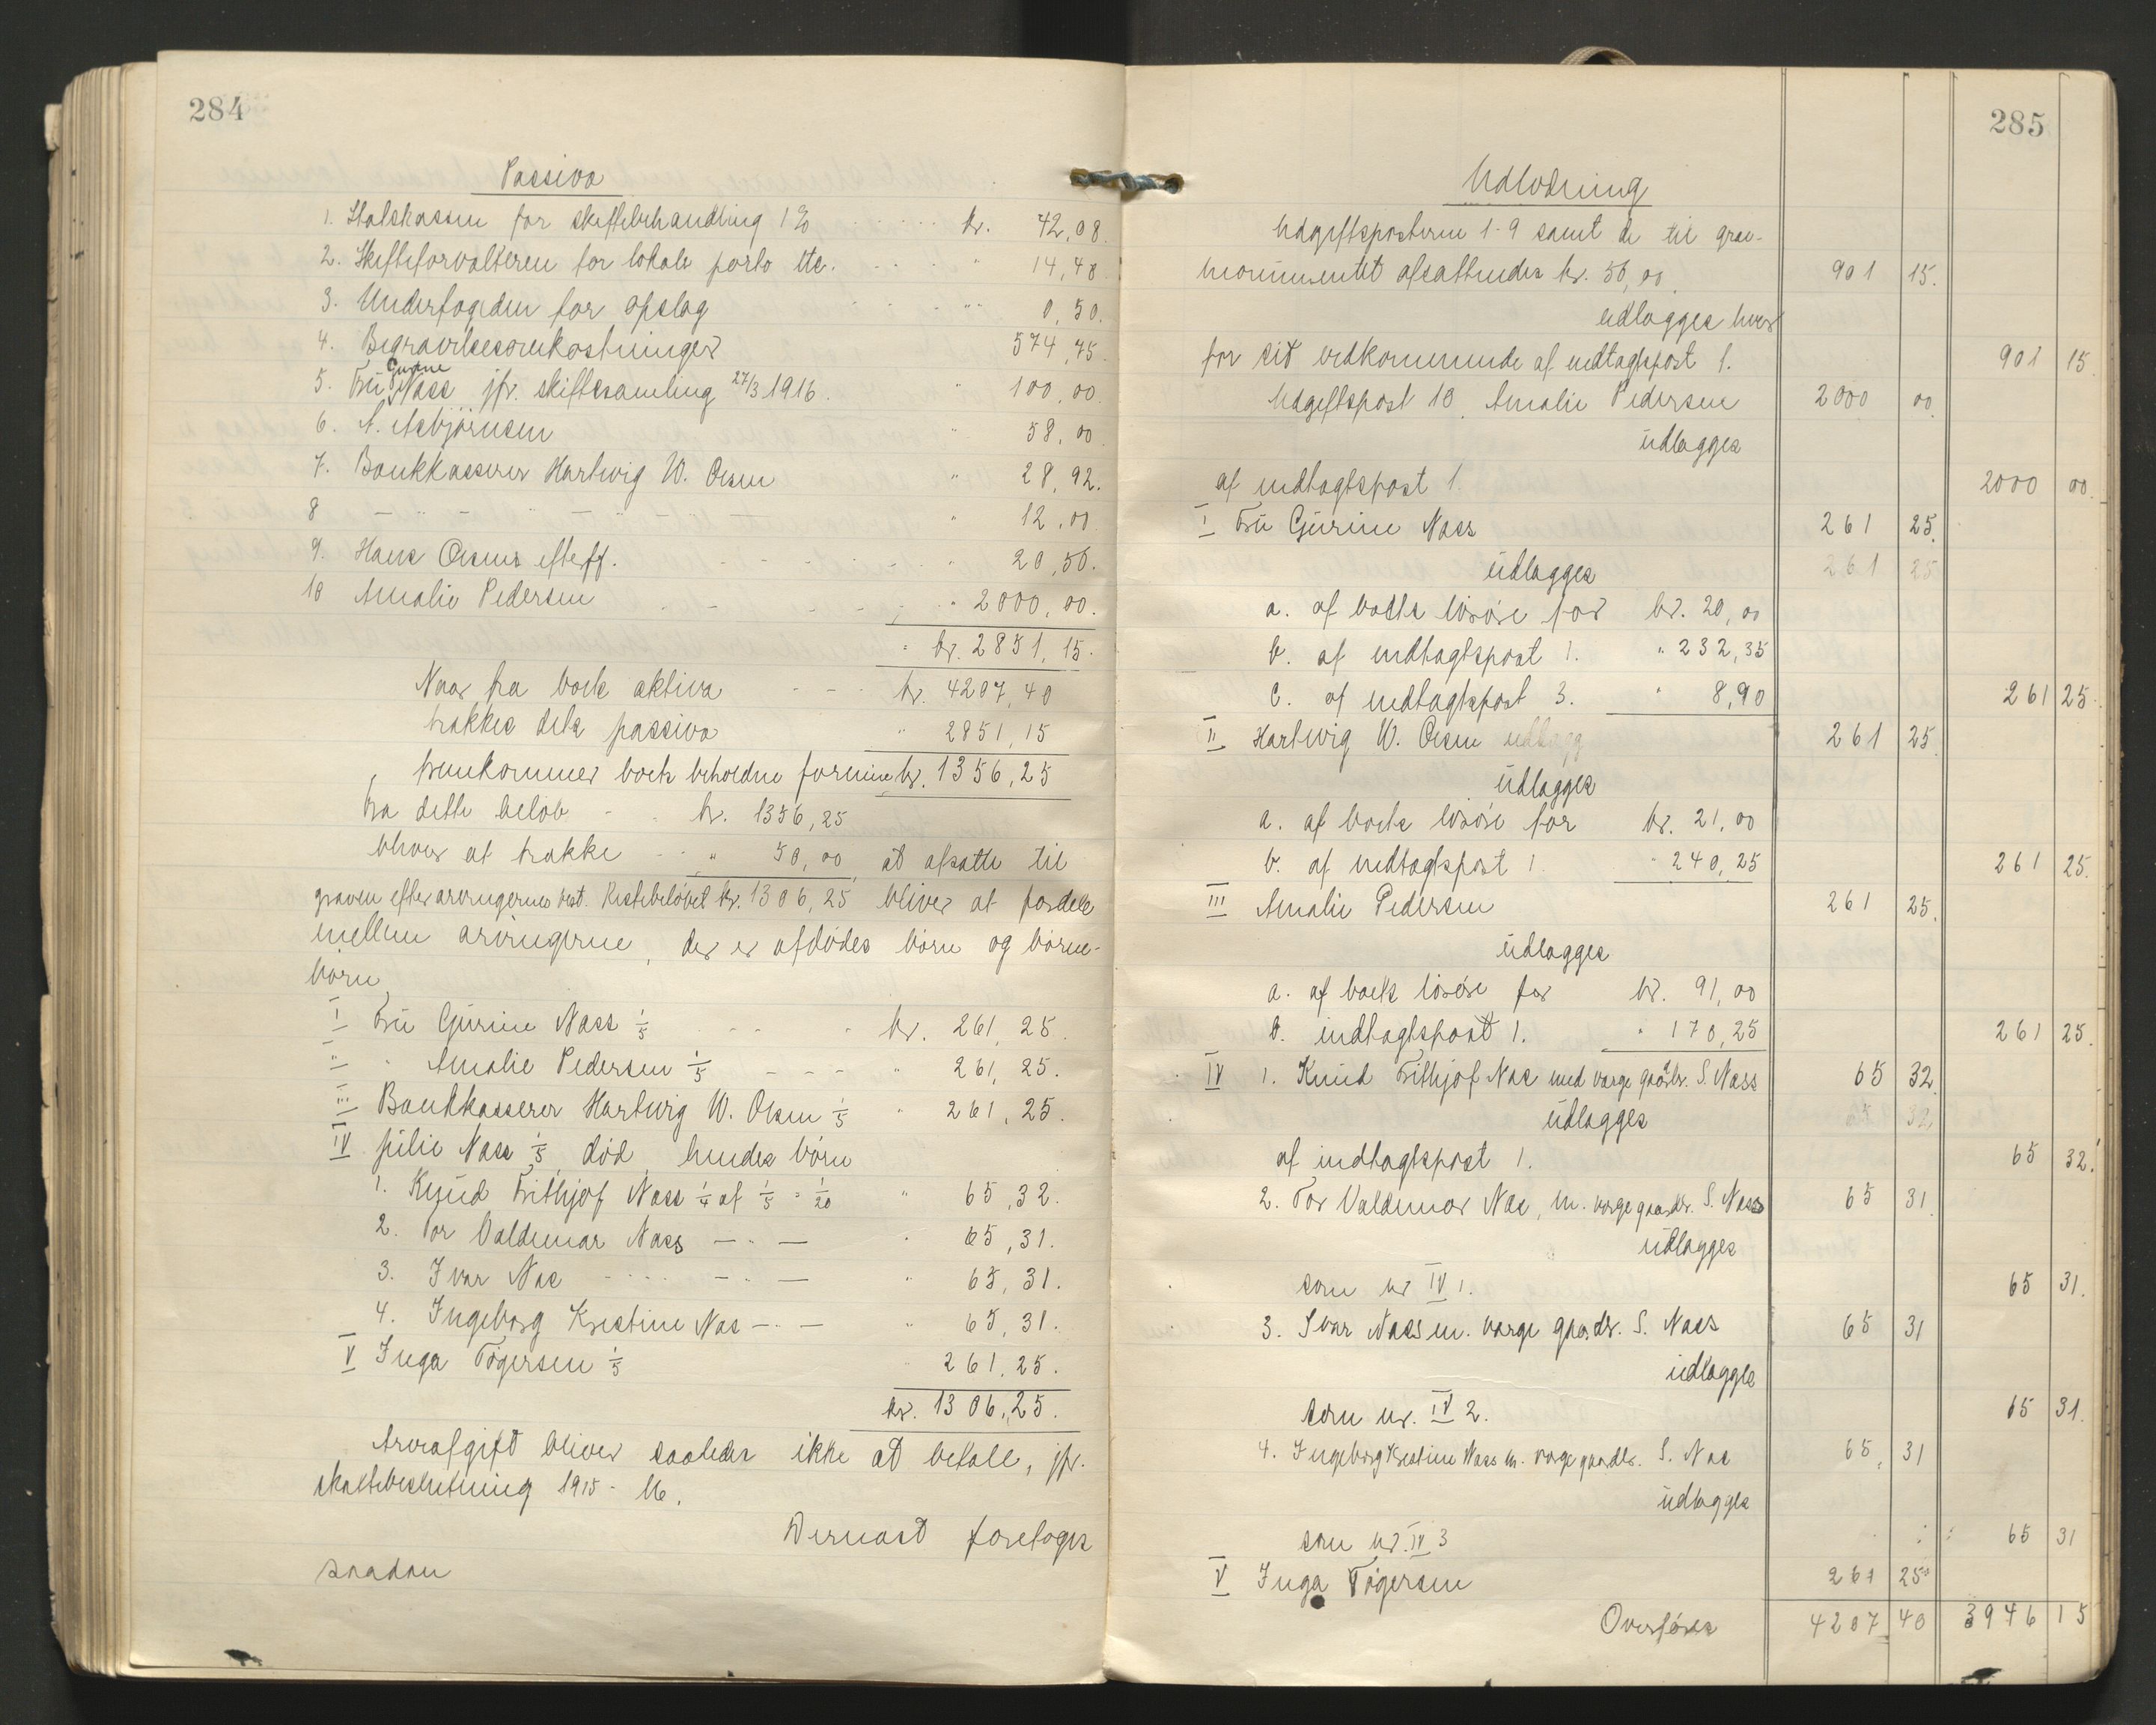 284
Passiva
1. Statskassen for skiftebehandling 1% kr. 42,08.
2. Skifteforvalteren for lokale porto etc. " 14,48
3. Underfogden for opslag " 0,50.
4. Begravelsesomkostninger 574,75
5. Fru Gurine Næss jfr. skiftesamling 27/3 1916. " 100,00
6. A. Asbjørnsen " 58,00
7. Bankkasserer Hartwig W. Olsen " 28,92.
8 — " — " — " — " 12,00
9. Hans Olsens efterf. " 20,50.
10 Amalie Pedersen " 2000,00.
kr. 2851,15.
Naar fra boets aktiva kr. 4207,40
trækkes dets passiva " 2851,15
fremkommer boets beholdne formue kr. 1356,25
Fra dette beløb kr. 1356,25
bliver at trække " 50,00, at afsætte til
graven efter arvingernes best. Restbeløbet kr. 1306,25 bliver at fordele
mellem arvingerne, der er afdødes børn og børne-
børn
I Fru Gurine Næss 1/5 kr. 261,25.
II " Amalie Pedersen 1/5 " 261,25.
III Bankkasserer Hartwig W. Olsen 1/5 " 261,25.
IV Julie Næss 1/5, død, hendes børn
1. Knud Frithjof Næss 1/4 af 1/5 = 1/20 " 65,32.
2. Tor Valdemar Næss — " — " 65,31.
3. Ivar Næs — " — " 65,31.
4. Ingeborg Kristine Næs — " — " 65,31.
V Inga Tøgersen 1/5 261,25.
kr. 1306,25.
Arveafgift bliver saaledes ikke at betale, jfr.
skattebeslutning 1915-16.
Dernæst foretoges
saadan
285
Udlodning
Udgiftsposterne 1-9 samt de til grav-
monumentet afsættendes kr. 50,00. 901 15.
udlægges hver
for sit vedkommende af indtægtspost 1. 901 15
Udgiftspost 10, Amalie Pedersen 2000 00
udlægges
af indtægtspost 1. 2000 00.
I Fru Gurine Næss 261 25.
udlægges 261 25
a. af boets løsøre for kr. 20,00
b. af indtægtspost 1. " 232,35
c. af indtægtspost 3. " 8,90 261 25
II Hartwig W. Olsen udlægg 261 25
udlægges
a. af boets løsøre for kr. 21,00
b. af indtægtspost 1 " 240,25 261 25.
III Amalie Pedersen 261 25.
udlægges
a. af boets løsøre for kr. 91,00
b. indtægtspost 1. " 170,25 261 25.
IV 1. Knud Frithjof Næs med værge gaardbr. S. Næss 65 32
udlægges 65 32,
af indtægtspost 1. 65 32.
2. Tor Valdemar Næs, m. værge gaardbr. S. Næss 65 31
udlægges
som nr IV 1. 65 31.
3. Ivar Næss m. værge gaardbr. S. Næss 65 31
udlægges
som nr. IV 2. 65 31.
4. Ingeborg Kristine Næss m. værge gaardbr. S. Næs 65, 31
udlægges
som nr. IV 3 65 31
V Inga Tøgersen 261 25
Overføres 4207 40 3946 15